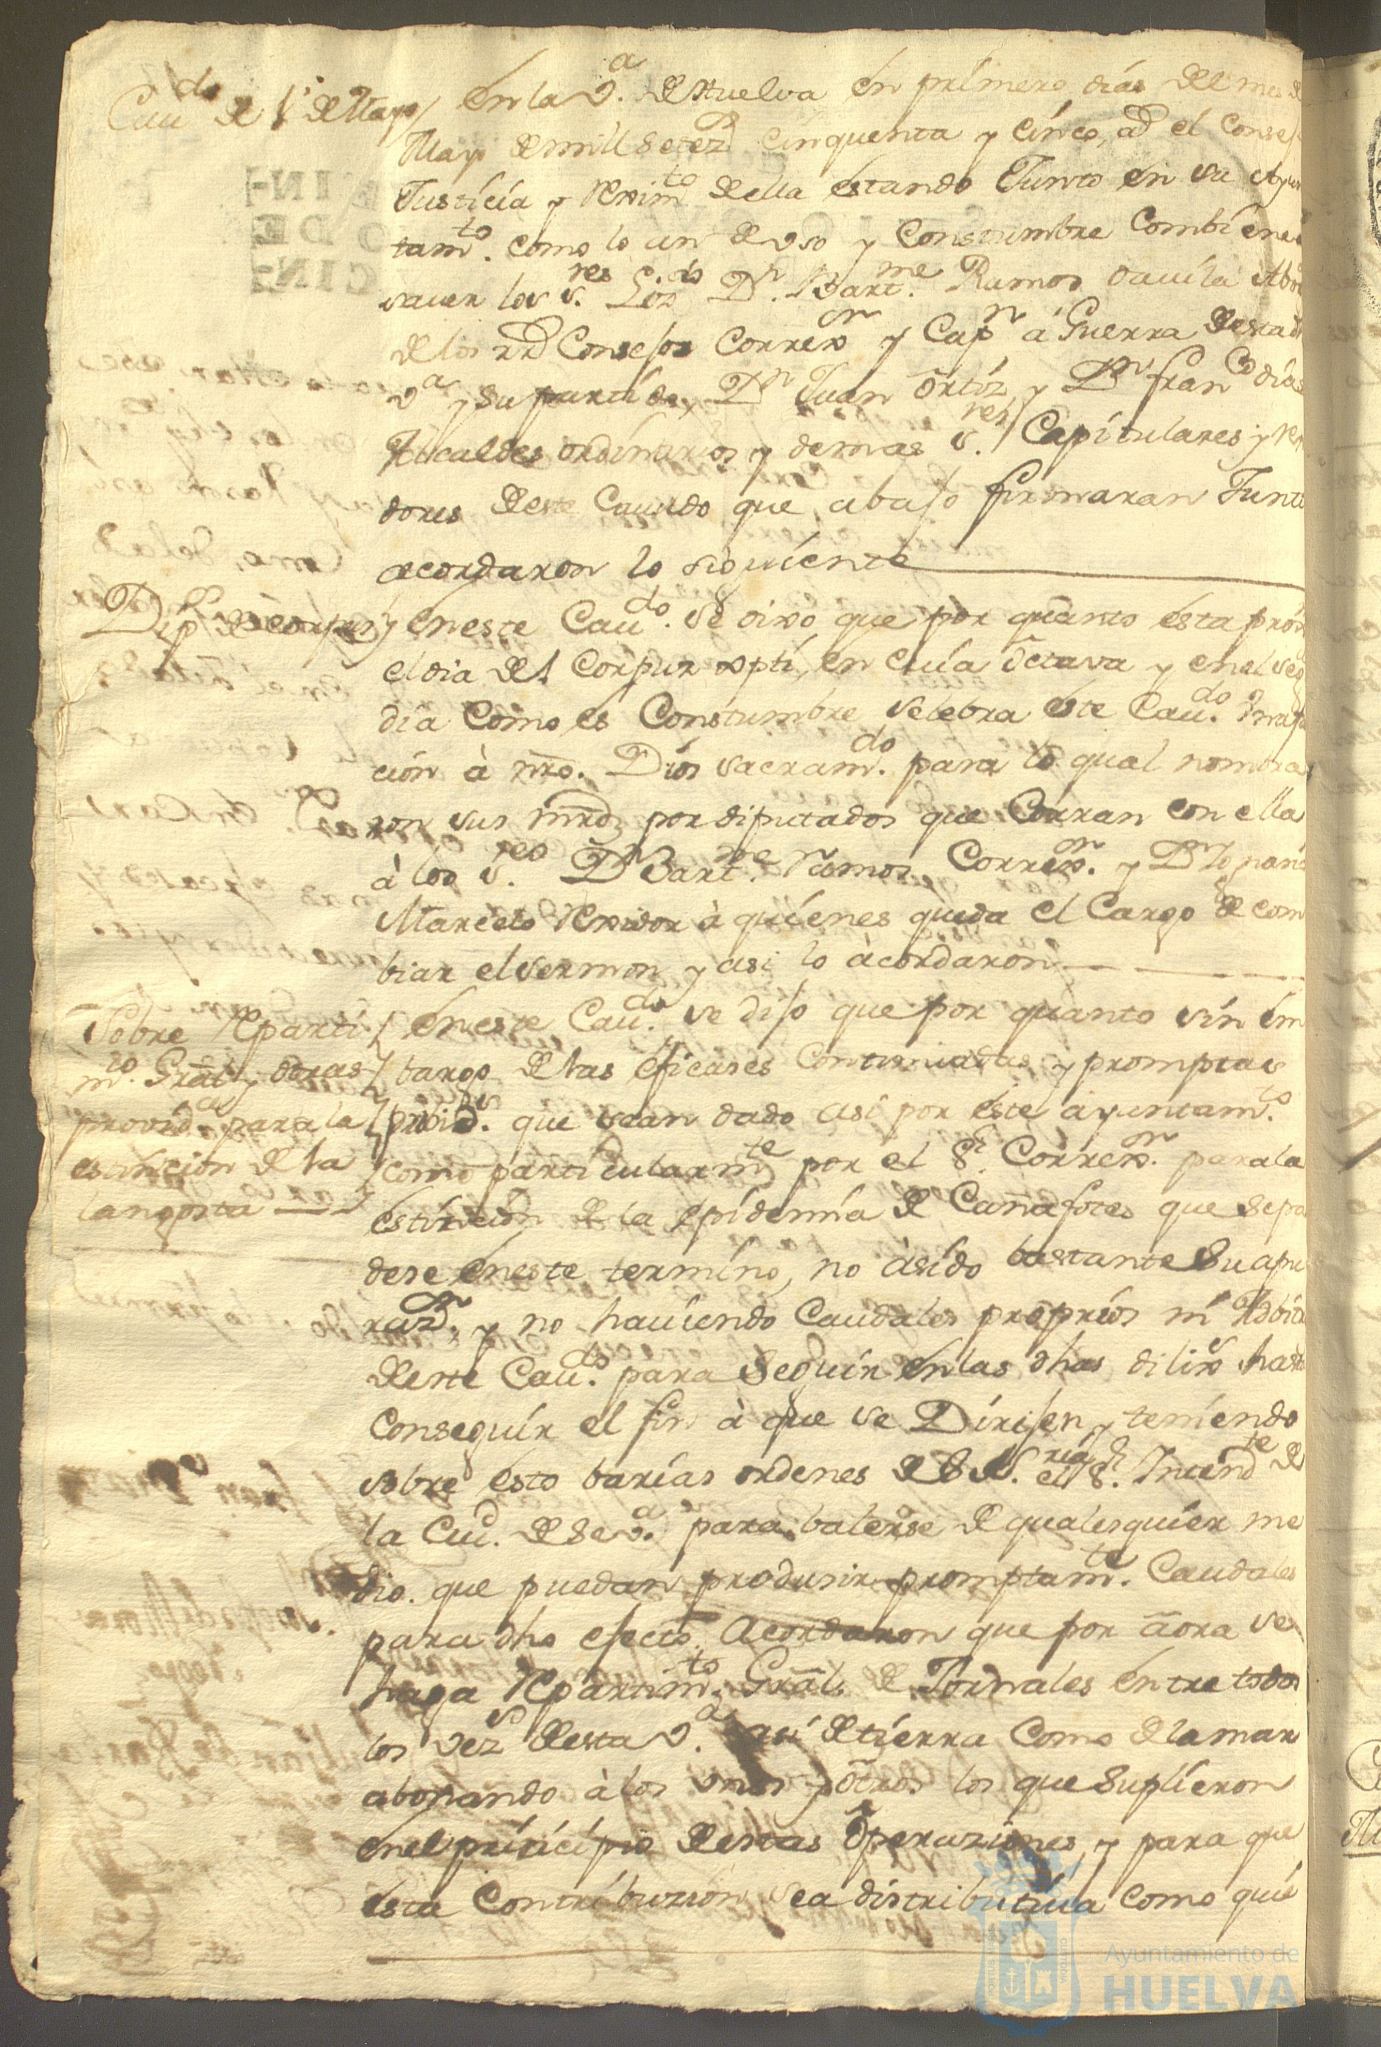 Cau.do de 1.o de Mayo / En la V.a de Huelva en primero dias del mes de
Mayo de mill setez.s cinquenta y cinco, ad el Consejo
Justicia y Reximto della estando Junto en su Ayun
tam.to como lo an de uso y Constumbre Combiene a
saver los s.res Liz.do D.n Bart.me Ramos Davila Abog.
de los RR.s Consejos Correx.or y Cap.n a Guerra desta d
v.a y su partido, D.n Juan Ortiz, y D.n Fran.co dias
Alcaldes ordinarios y demas s.res Capitulares y Rex
dores deste Cauildo que abajo firmaran Junto
acordaron lo siguiente
Dip.s de corpus / en este Cau.do se dixo que por quanto esta prox
el dia del Corpus xpti, en cuia octava y en el seg
dia como es Constumbre selebra este Cau.do
cion à nro. Dios sacram.do para lo qual nombra
ron sus mrds por diputados que Corran con ella
à los s.res D.n Bart.me Ramos Correx.or y D.n
Marcelo Rexidor à quienes queda el Cargo de com
biar el sermon y asi lo àcordaron
Sobre Reparti
m.to Gral y otras
provid.as para la
estincion de la
langosta
en este Cau.do se dijo que por quanto sin em
bargo de las eficases continuadas y promptas
provid.s que sean dado asi por este ayuntam.to
como particularm.te por el S.r Correx.or para la
estincion de la epidemia de Cañafotes que se pa
dese en este termino, no àsido bastante su apu
raz.on y no hauiendo Caudales proprios ni Adbitrios
deste Cau.do para Seguir en las dhas dilix.s hasta
Conseguir el fin à que se Dirijen, y teniendo
sobre esto barias ordenes de S S.ria el S.r Intend.te de
la Ciu.d de Sev.a para balerse de qualesquier me
dio que puedan produsir promptam.te Caudales
para dho efecto. Acordaron que por aora se
haga Repartim.to Gral. de Jornales entre todos
los vez.s desta V.a asi de tierra como de la mar
abonando à los unos y otros los que Suplieron
en el principio destas operaziones, y para que
esta Contribuzion sea distributiva como qui
Ayuntamiento de
HUELVA